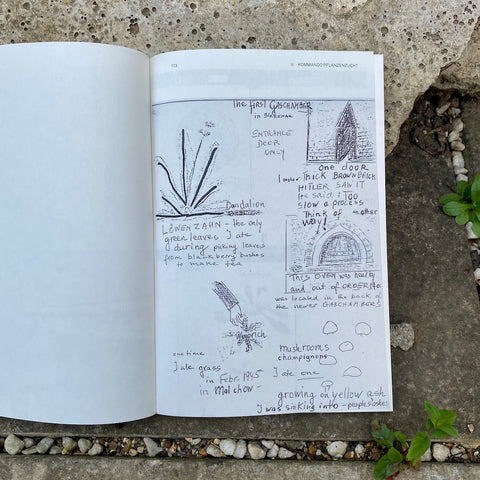 II KOMMANDO PFLANZENZUCHT
The FIRST GASCHAMBER
in Birkenau
ENTRANCE
DOOR
ONLY
one door
1 meter Thick BROWN BRICK
HITLER SAW IT
He said: TOO
SLOW a process
Think of another
way!
Dandalion
LÖWENZAHN - the only
green leaves I ate
during picking leaves
from blackberry bushes
to make tea
This OVEN was nearby
and out of ORDER
was located in the back of
the newer GASCHAMBER!
one time
I ate grass
in Febr. 1945
in Malchow -
mushrooms
champignons
I ate one
growing on yellow ash
I was sinking into - peoples ashes